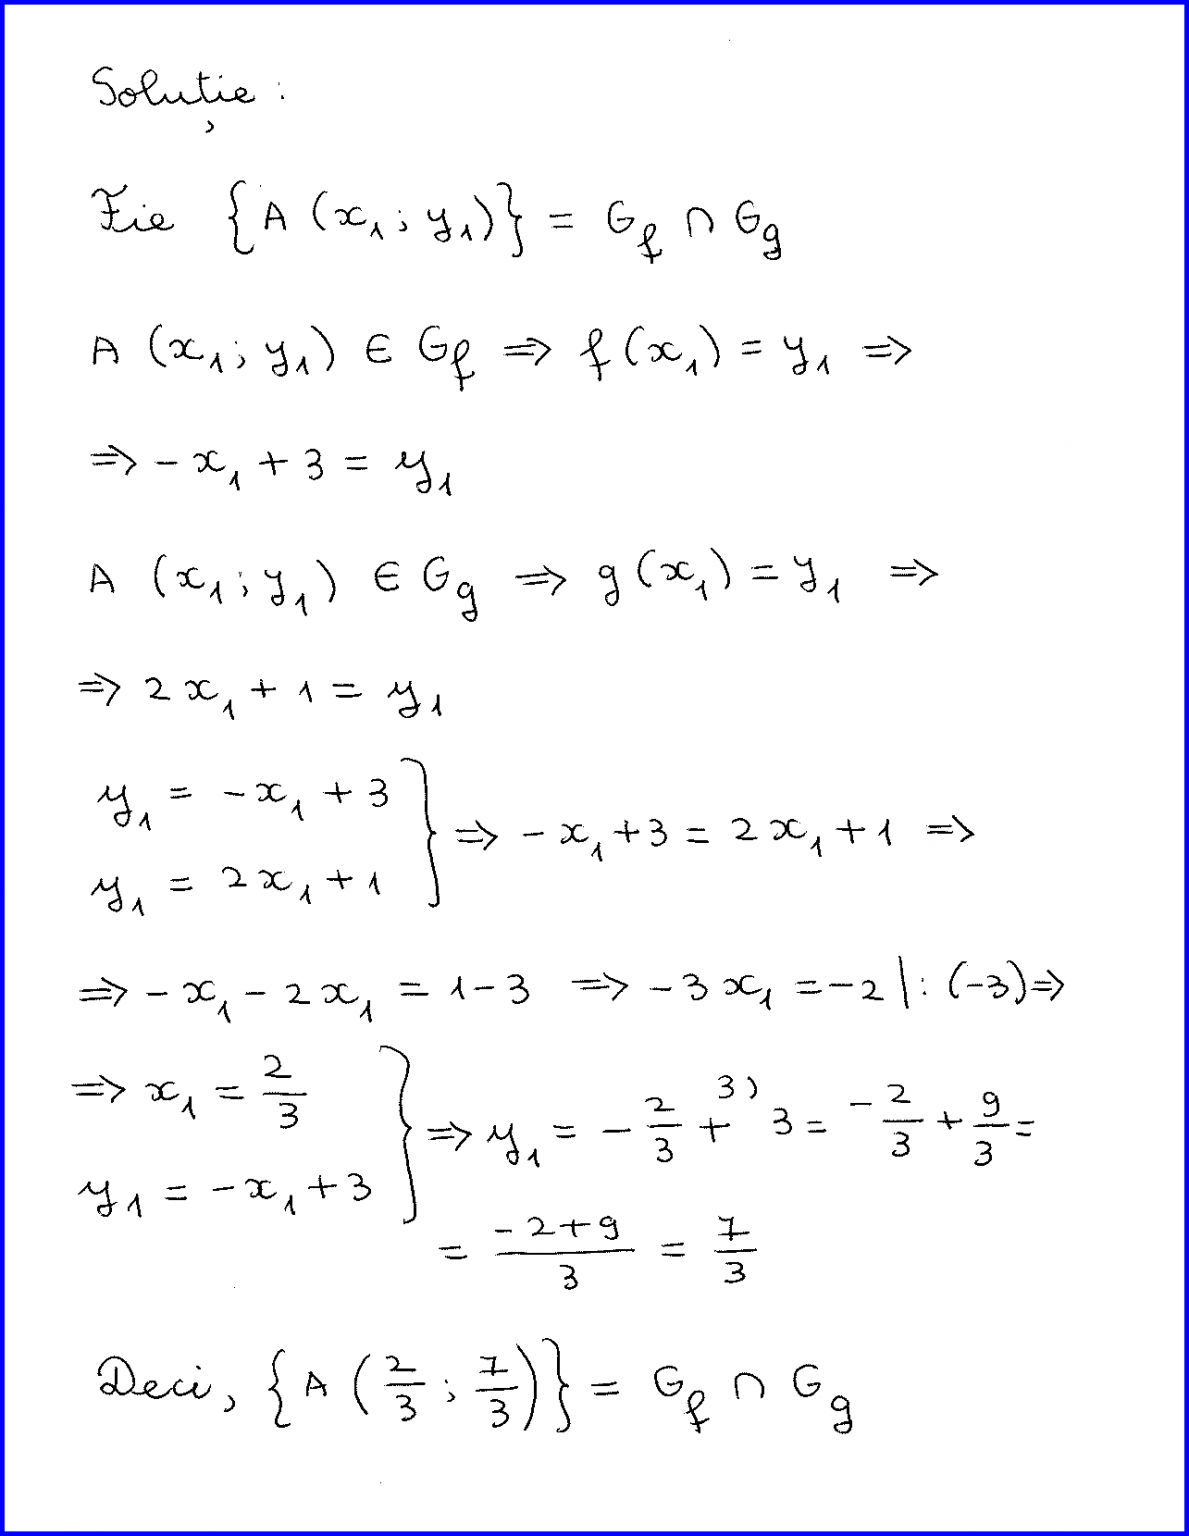 Soluție :
Fie {A (x₁; y₁)} = G_f ∩ G_g
A (x₁; y₁) ∈ G_f ⇒ f(x₁) = y₁ ⇒
⇒ -x₁ + 3 = y₁
A (x₁; y₁) ∈ G_g ⇒ g(x₁) = y₁ ⇒
⇒ 2x₁ + 1 = y₁
y₁ = -x₁ + 3
y₁ = 2x₁ + 1 } ⇒ -x₁ + 3 = 2x₁ + 1 ⇒
⇒ -x₁ - 2x₁ = 1 - 3 ⇒ -3x₁ = -2 | : (-3) ⇒
⇒ x₁ = 2/3
y₁ = -x₁ + 3 } ⇒ y₁ = -2/3 + ³⁾3 = -2/3 + 9/3 =
= (-2+9)/3 = 7/3
Deci, {A (2/3; 7/3)} = G_f ∩ G_g